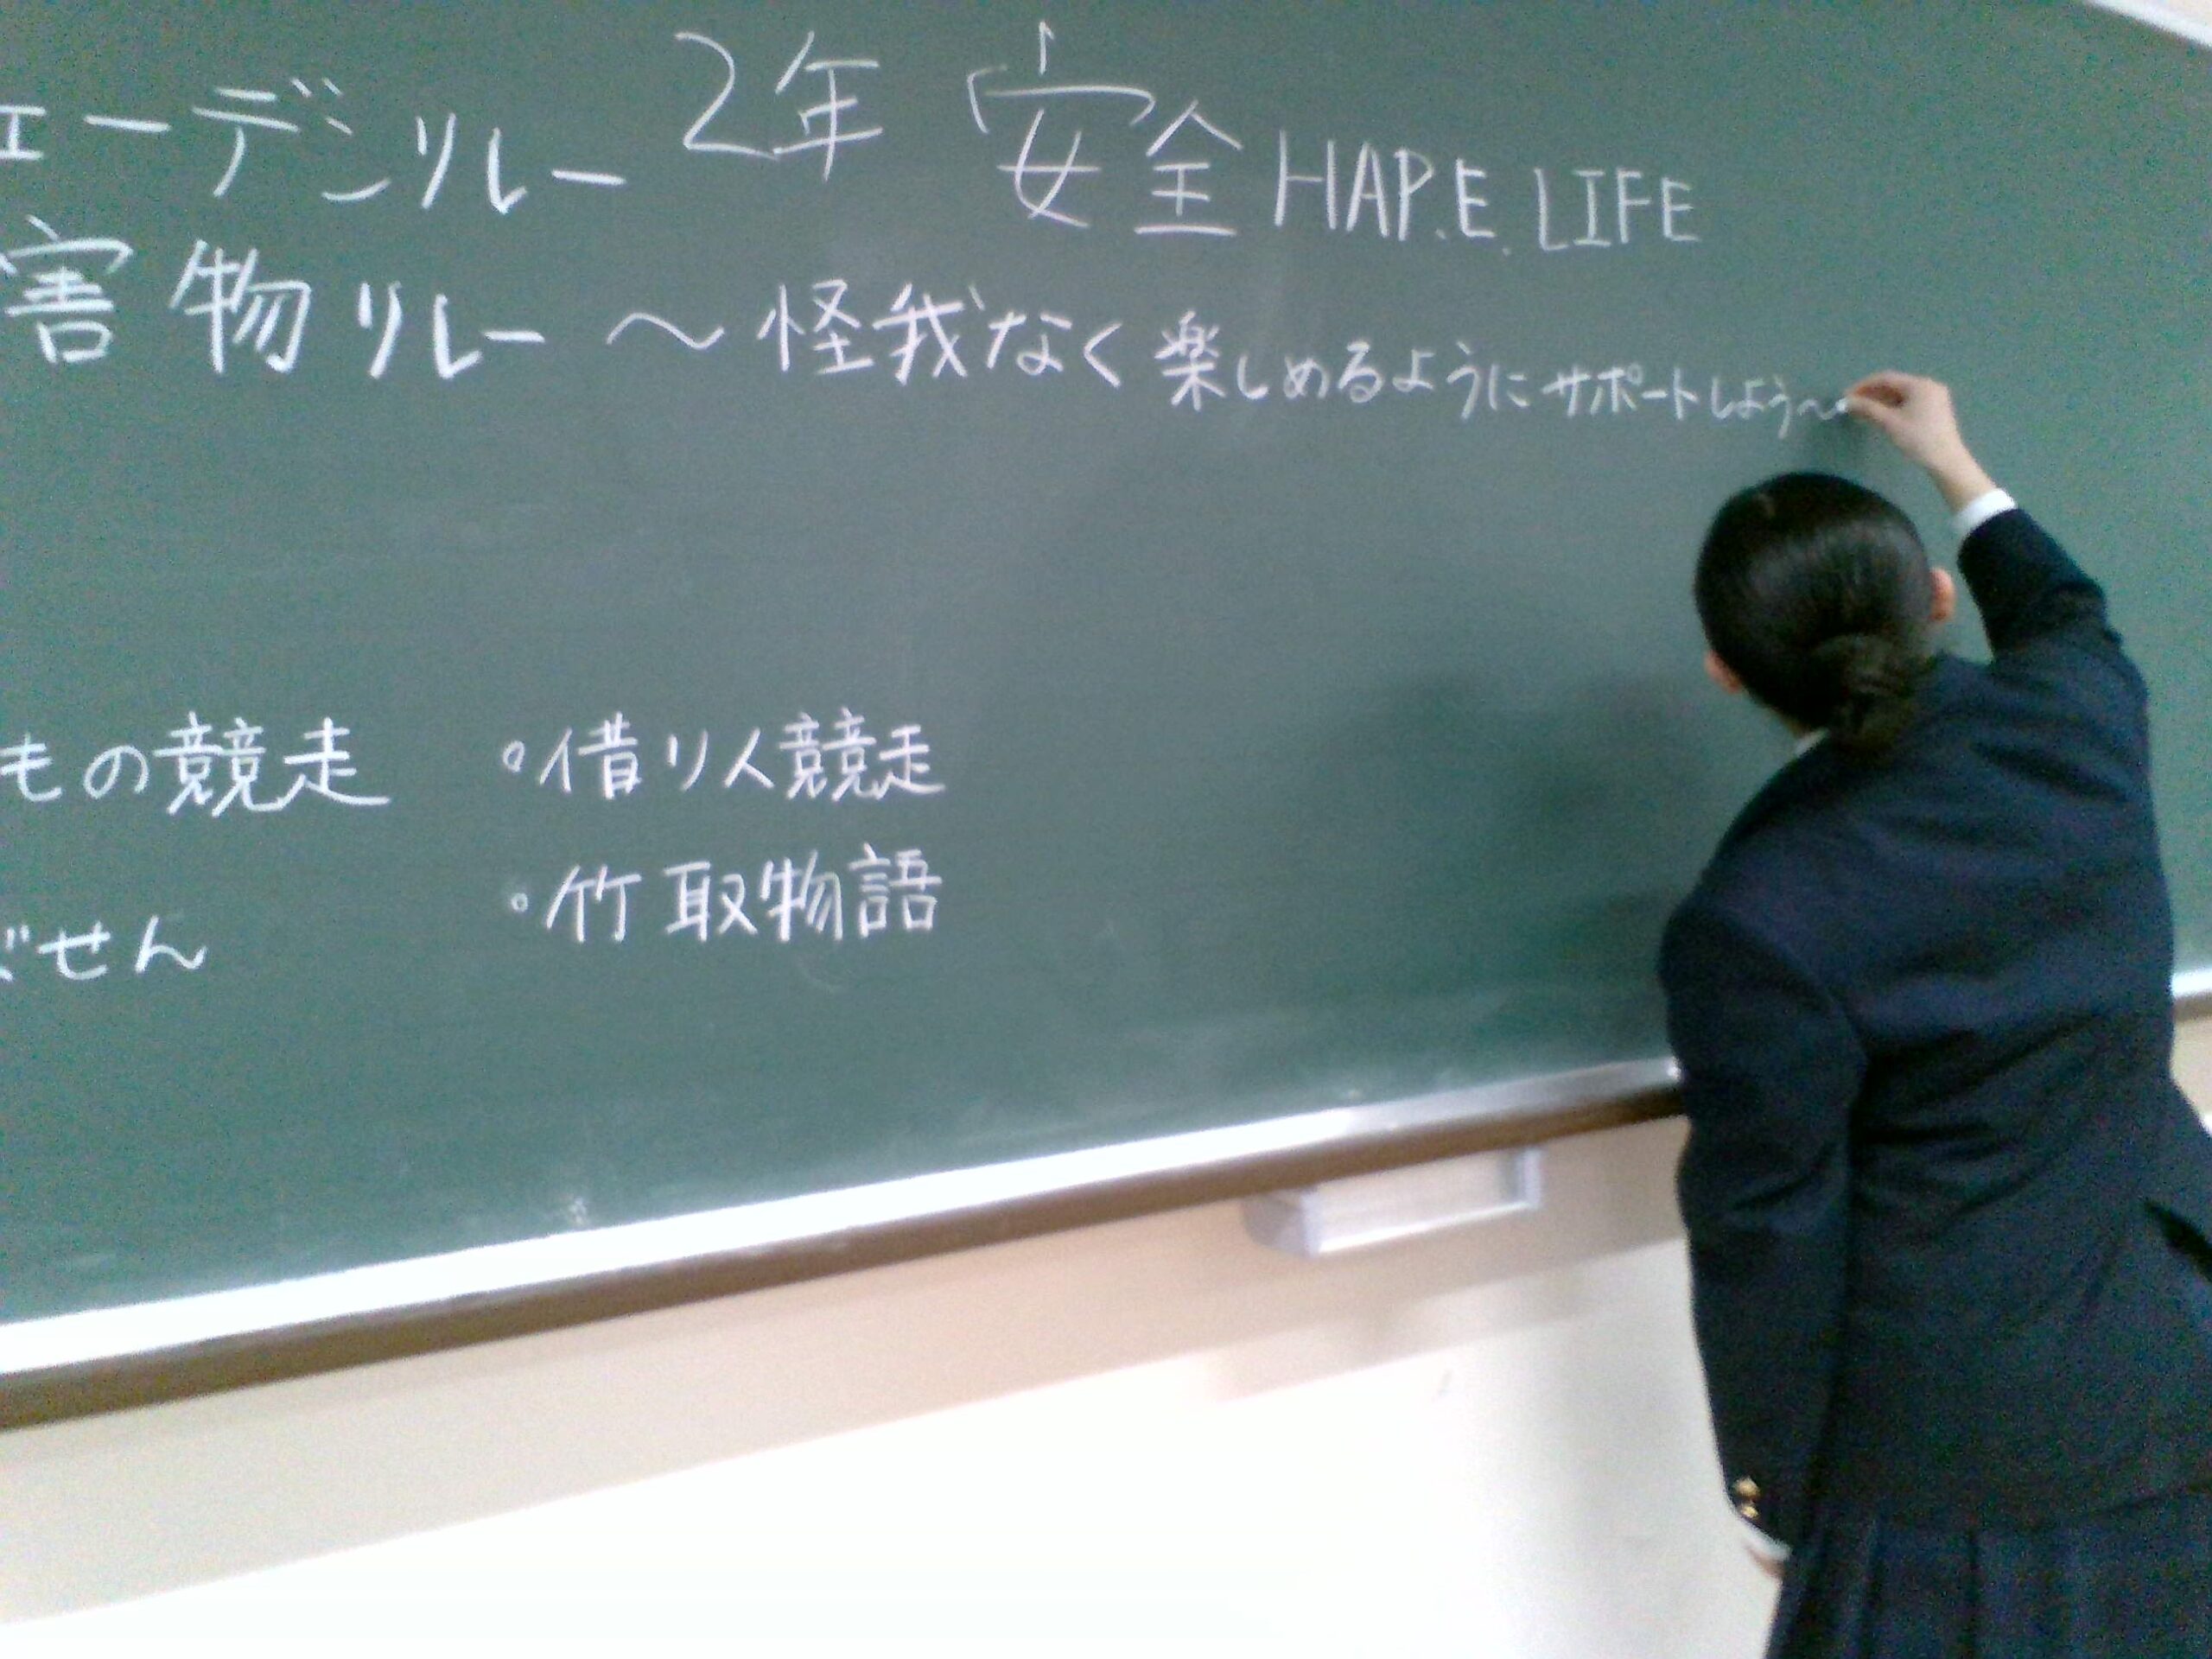 ェーデンリレー
害物リレー
2年 安全 HAP.E. LIFE
～怪我なく楽しめるようにサポートしよう～
もの競走
ばせん
・借り人競走
・竹取物語